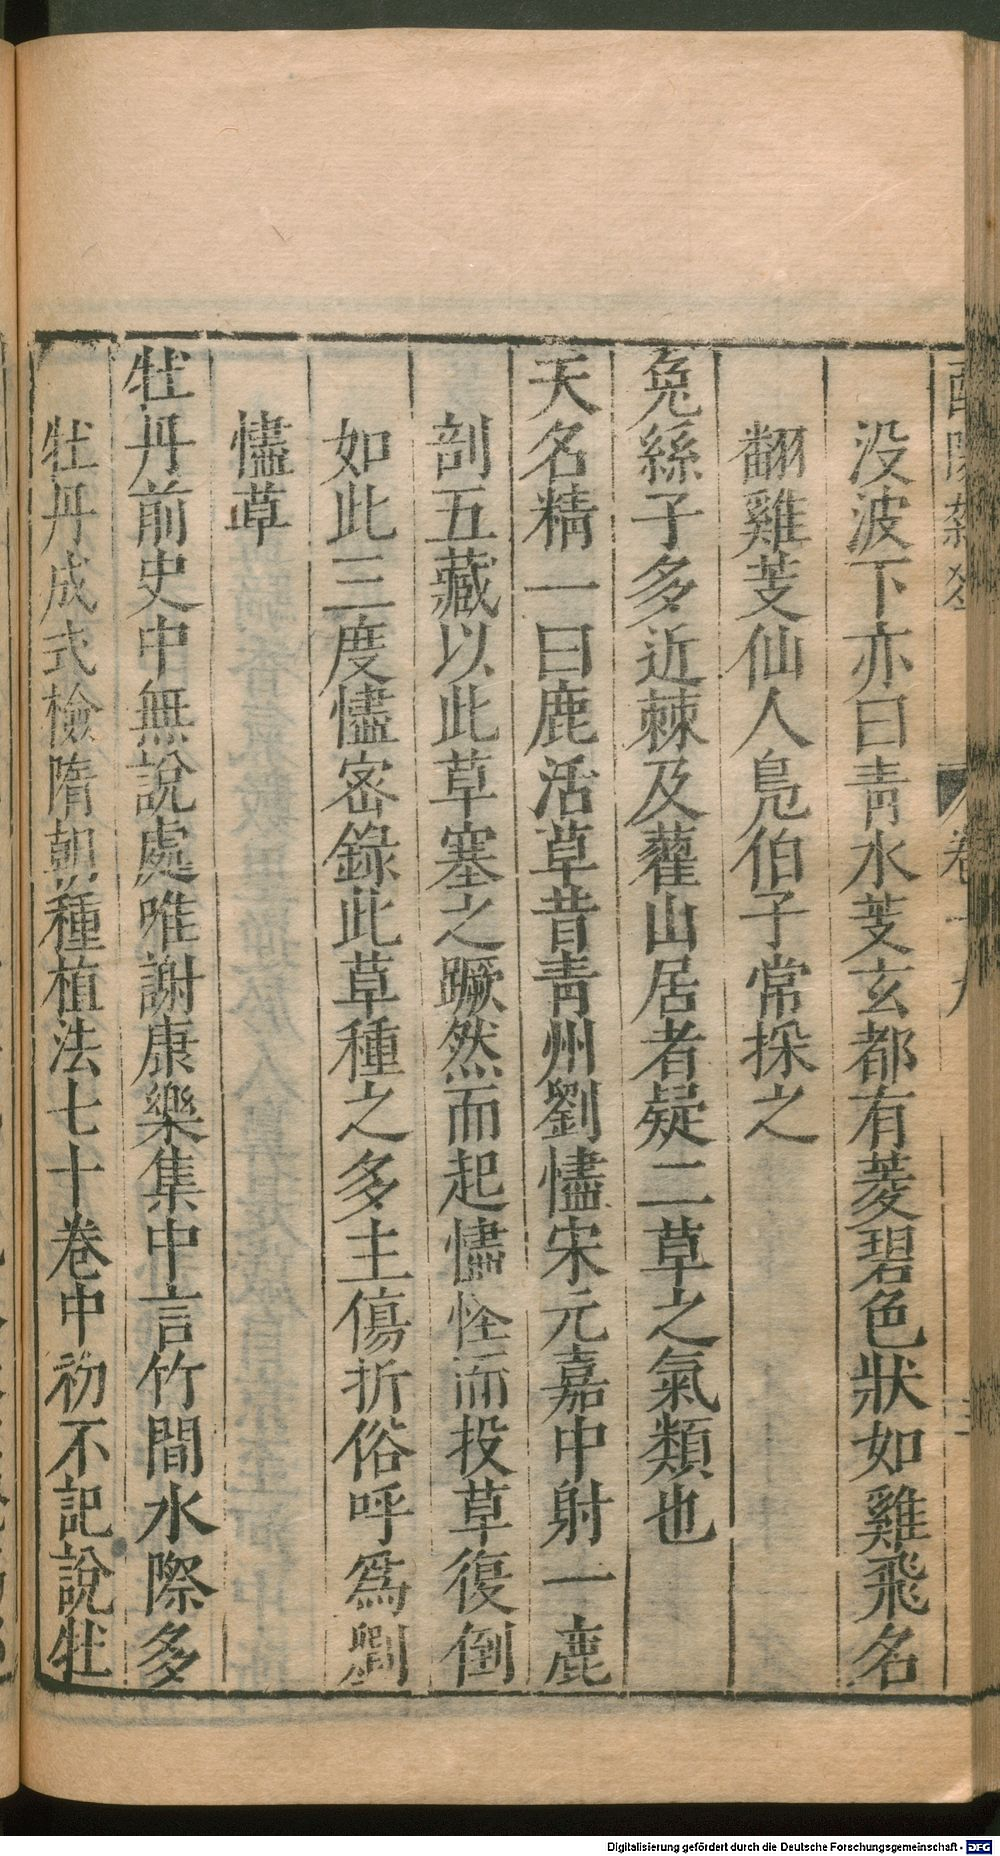 没波下亦曰青水芰玄都有菱碧色狀如雞飛名
翻雞芰仙人鳧伯子常採之
兔絲子多近棘及藋山居者疑二草之氣類也
天名精一曰鹿活草昔青州劉㦻宋元嘉中射一鹿
剖五藏以此草塞之蹶然而起㦻怪而投草復倒
如此三度㦻密錄此草種之多主傷折俗呼爲劉
㦻草
牡丹前史中無說處唯謝康樂集中言竹間水際多
牡丹成式檢隋朝種植法七十卷中初不記說牡
Digitalisierung gefördert durch die Deutsche Forschungsgemeinschaft - DFG